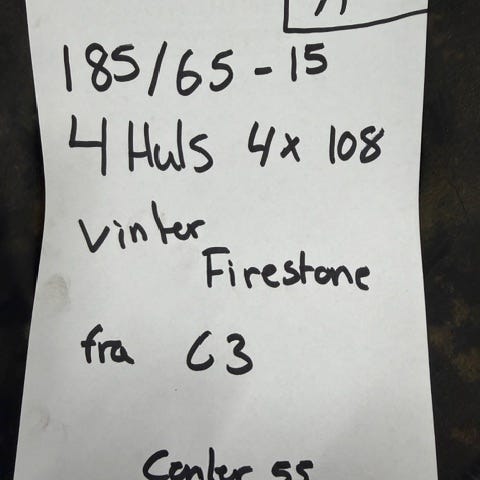 185/65-15
4 Huls 4x 108
Vinter
Firestone
fra C3